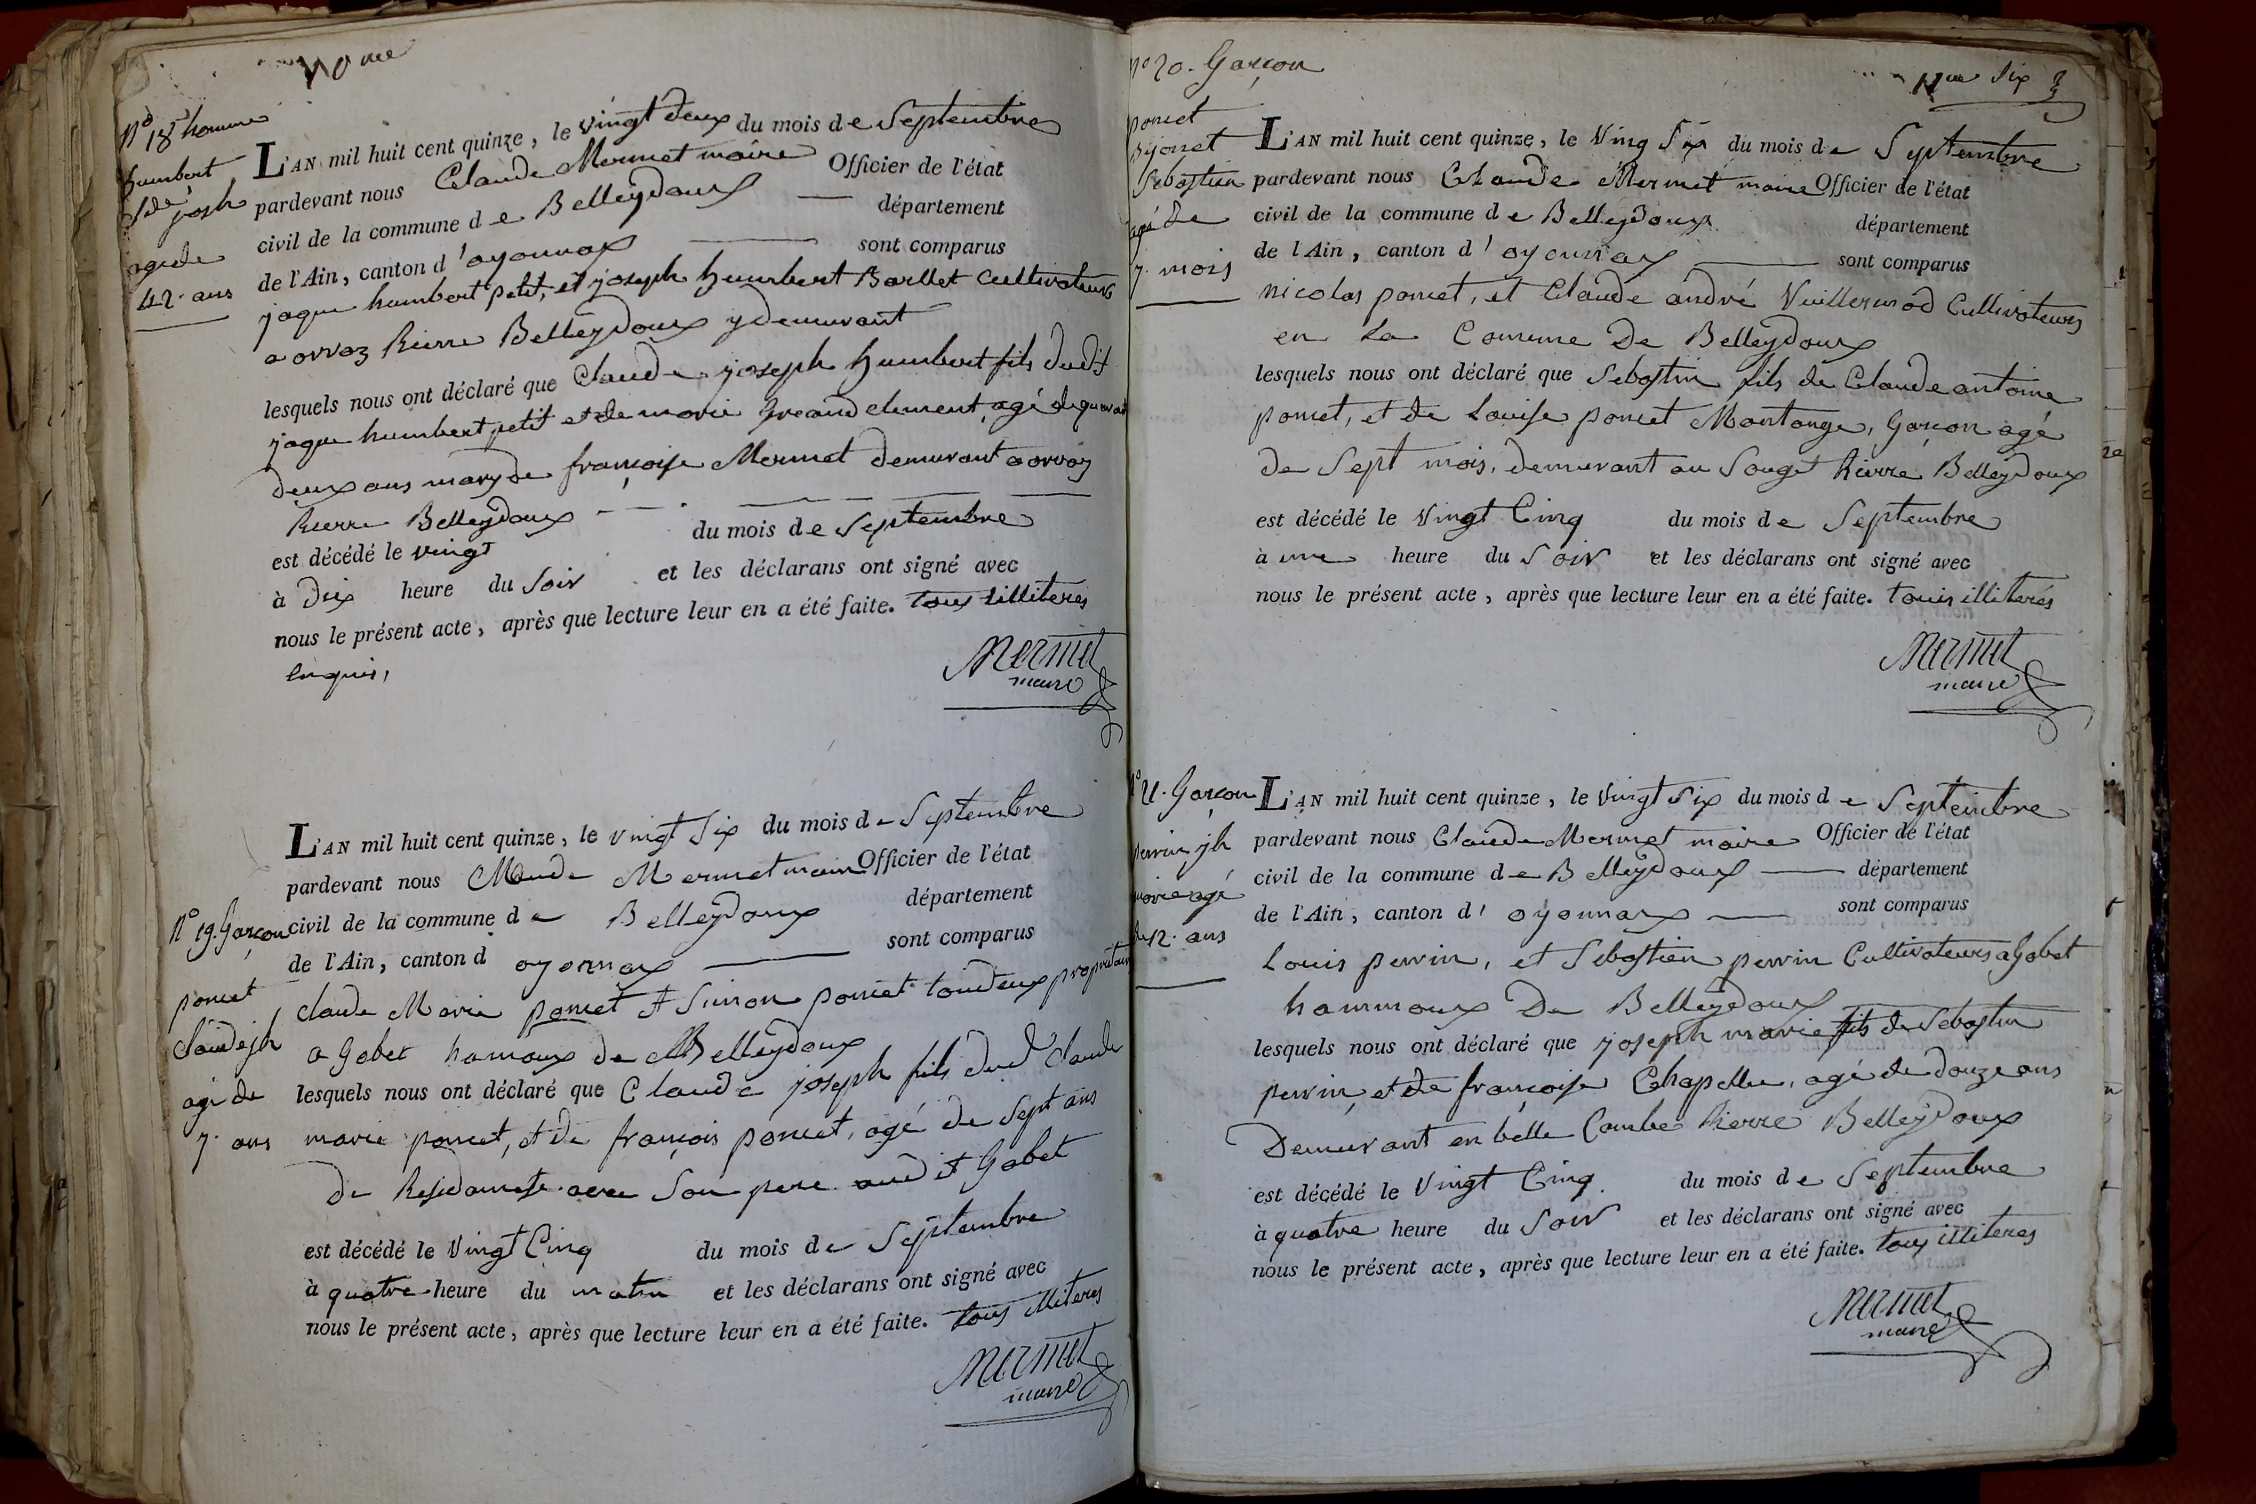 N° 18 homme
humbert
Cde josph
agé de
42. ans
L'AN mil huit cent quinze, le vingt deux du mois de Septembre
pardevant nous Claude Mermet maire Officier de l'état
civil de la commune de Belleydoux département
de l'Ain, canton d'oyonnax sont comparus
jaque humbert petit, et joseph humbert Baillet Cultivateurs
a orvaz Rierre Belleydoux y demeurant
lesquels nous ont déclaré que Claude joseph humbert fils dudit
jaque humbert petit et de marie clement, agé de quarante
deux ans mary de françoise Mermet demurant a orvaz
Rierre Belleydoux
est décédé le vingt du mois de Septembre
à dix heure du Soir et les déclarans ont signé avec
nous le présent acte, après que lecture leur en a été faite. tous illiteres
enquis,
Mermet
maire
N° 19. Garçon
poncet
Claude jh
agé de
7. ans
L'AN mil huit cent quinze, le vingt Six du mois de Septembre
pardevant nous Claude Mermet maire Officier de l'état
civil de la commune de Belleydoux département
de l'Ain, canton d oyonnax sont comparus
claude Marie poncet et Simon poncet tous deux propriétaires
a Gobet hamaux de Belleydoux
lesquels nous ont déclaré que Claude joseph fils dud claude
marie poncet, et de françois poncet, agé de Sept ans
de avec Son pere audit Gobet
est décédé le Vingt Cinq du mois de Septembre
à quatre heure du matin et les déclarans ont signé avec
nous le présent acte, après que lecture leur en a été faite. tous illiteres
Mermet
maire
N° 20. Garçon
Six
poncet
Sebastien
agé de
7. mois
L'AN mil huit cent quinze, le Ving Six du mois de Septembre
pardevant nous Claude Mermet maire Officier de l'état
civil de la commune de Belleydoux département
de l'Ain, canton d'oyonnax sont comparus
Nicolas poncet, et Claude andré Vuillermod Cultivateurs
en La Comune De Belleydoux
lesquels nous ont déclaré que Sebastin fils de Claude antoine
poncet, et de Louise poncet Montange, Garçon agé
de Sept mois, demurant au Souget Rierre Belleydoux
est décédé le Vingt Cinq du mois de Septembre
à une heure du Soir et les déclarans ont signé avec
nous le présent acte, après que lecture leur en a été faite. touis illiterés
Mermet
maire
N° 21. Garçon
perrin jh
marie agé
de 12. ans
L'AN mil huit cent quinze, le Vingt Six du mois de Septembre
pardevant nous Claude Mermet maire Officier de l'état
civil de la commune de Belleydoux département
de l'Ain, canton d'oyonnax sont comparus
Louis perrin, et Sebastien perrin Cultivateurs a Gobet
hammoux De Belleydoux
lesquels nous ont déclaré que joseph marie fils de Sebastin
perrin, et de françoise Chapelle, agé de douze ans
Demeurant en belle Combe Rierre Belleydoux
est décédé le Vingt Cinq du mois de Septembre
à quatre heure du Soir et les déclarans ont signé avec
nous le présent acte, après que lecture leur en a été faite. tous illiteres
Mermet
maire